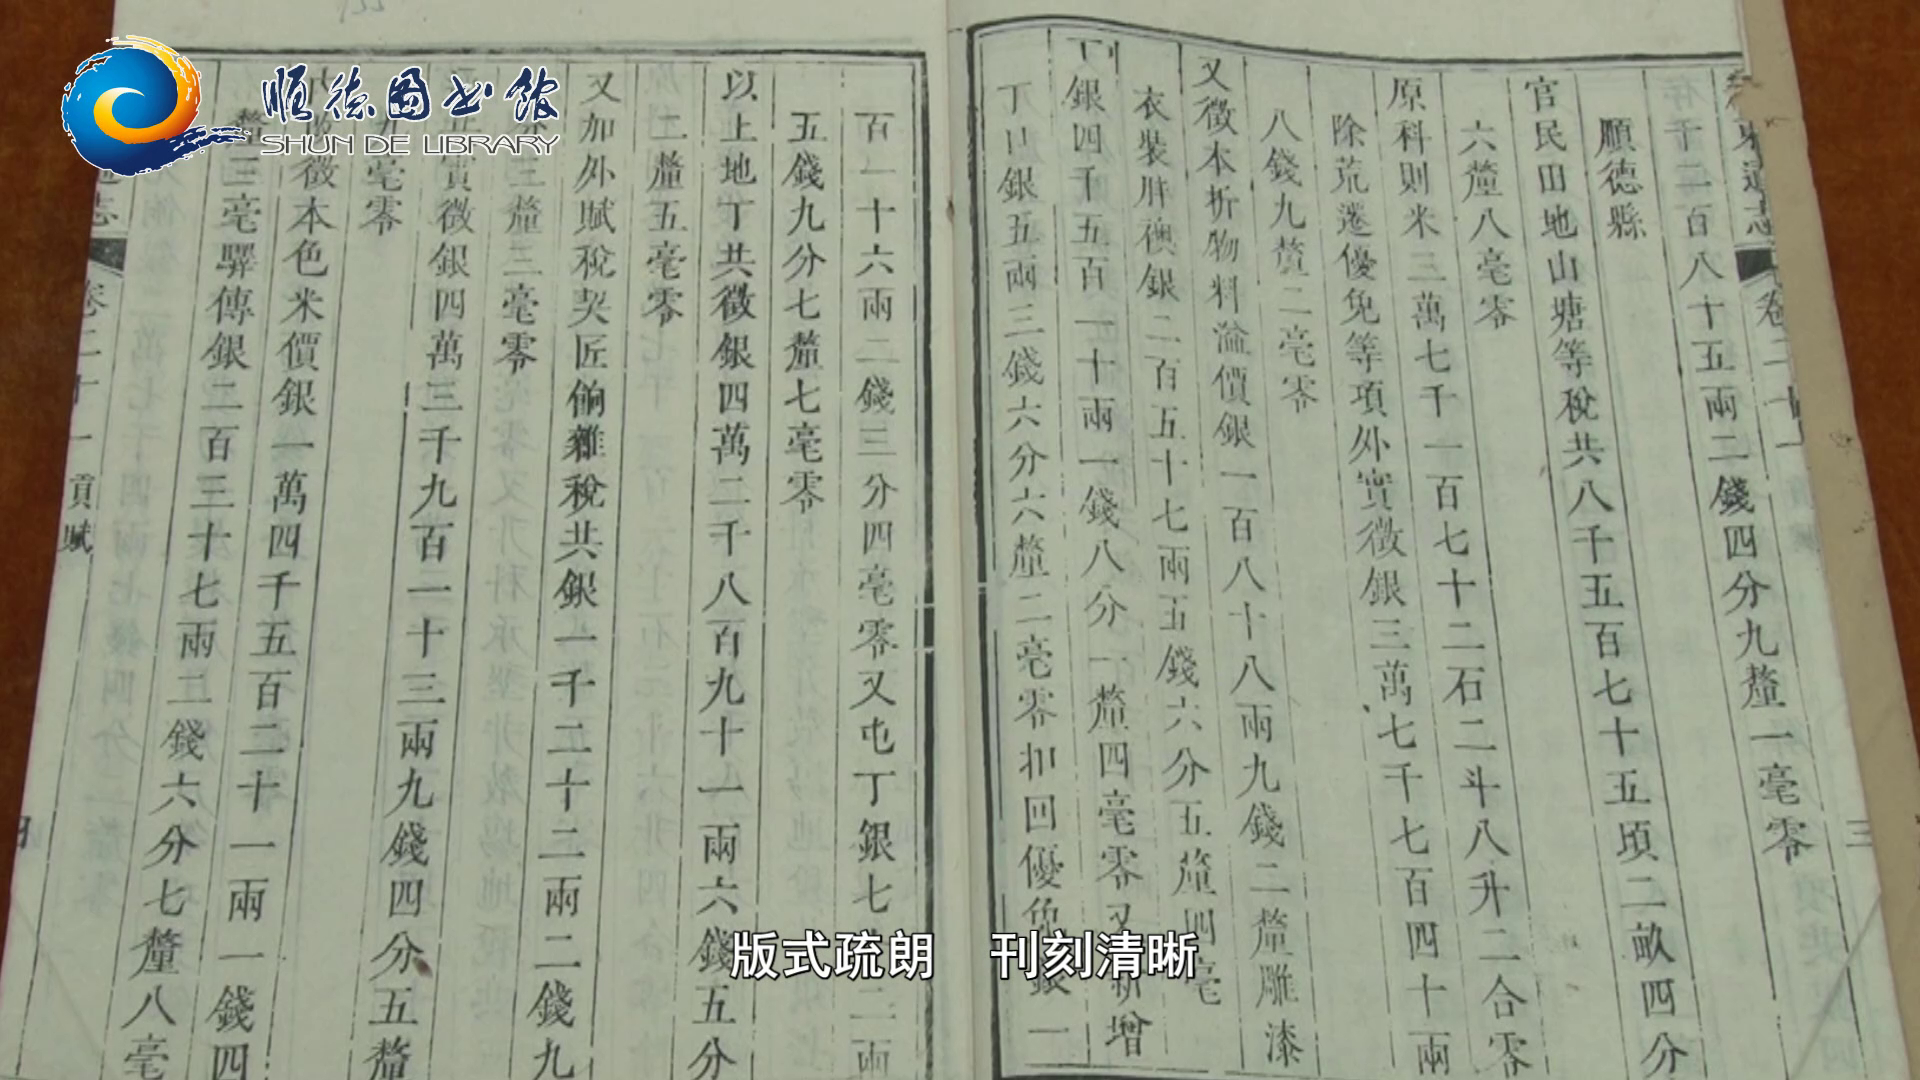 順德图书館
SHUN DE LIBRARY
百八十五兩二錢四分九釐一毫零
順德縣
官民田地山塘等稅共八千五百七十五頃二畝四分
六釐八毫零
原科則米三萬七千一百七十二石二斗八升二合零
除荒遷優免等項外實徵銀三萬七千七百四十兩
八錢九釐二毫零
又徵本折物料渝價銀一百八十八兩九錢二釐雕漆
衣裝胖襖銀二百五十七兩五錢六分五釐四毫
銀四千五百一十兩一錢八分一釐四毫零又新增
丁口銀五兩三錢六分六釐二毫零扣回優免銀一
百一十六兩二錢三分四毫零又屯丁銀七二兩
五錢九分七釐七毫零
以上地丁共徵銀四萬二千八百九十一兩六錢五分
二釐五毫零
又加外賦稅契匠餉雜稅共銀一千二十二兩二錢九
三釐三毫零
實徵銀四萬三千九百一十三兩九錢四分五釐
毫零
徵本色米價銀一萬四千五百二十一兩一錢四
三毫驛傳銀二百三十七兩二錢六分七釐八毫
志
卷二十一
貢賦
版式疏朗 刊刻清晰